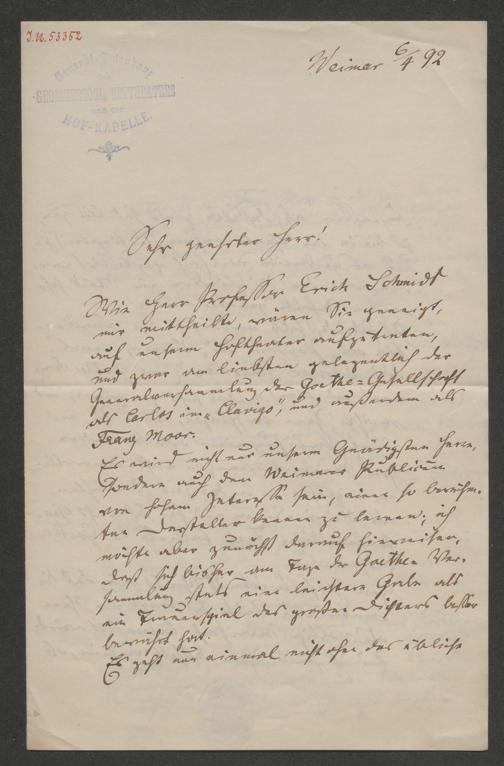 I.N. 53352
General-Intendanz
des
GROSSHERZOGL. HOFTHEATERS
und der
HOF-KAPELLE.
Weimar 6/4 92
Sehr geehrter Herr!
Wie Herr Professor Erich Schmidt
mir mittheilte, wären Sie geneigt,
auf unserm Hoftheater aufzutreten,
und zwar am liebsten gelegentlich der
Generalversammlung der Goethe-Gesellschaft
als Carlos im „Clavigo", und außerdem als
Franz Moor.
Es wird nicht nur unserm Gnädigsten Herrn,
sondern auch dem Weimarer Publicum
von hohem Interesse sein, einen so berühm-
ten Darsteller kennen zu lernen; ich
möchte aber zunächst darauf hinweisen,
daß sich bisher am Tage der Goethe-Ver-
sammlung stets eine leichtere Gabe als
ein Trauerspiel des großen Dichters besser
bewährt hat.
Es geht nun einmal nicht ohne das übliche